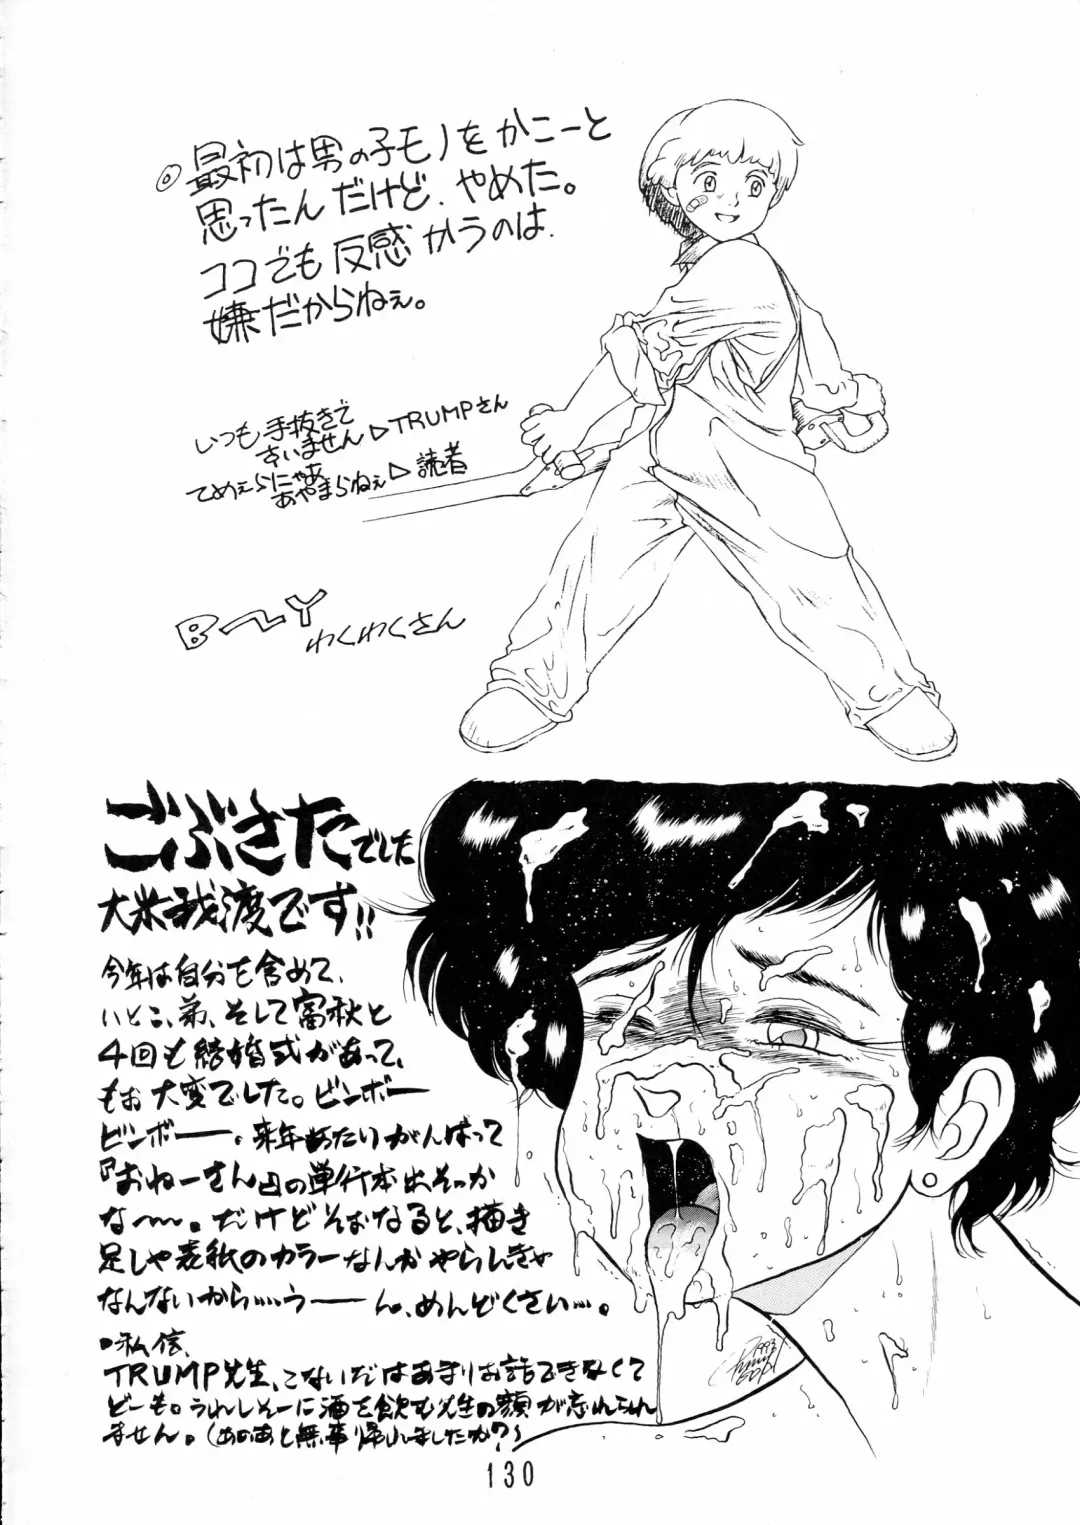 ◎最初は男の子モノをかこーと
思ったんだけど、やめた。
ココでも反感かうのは、
嫌だからねぇ。
いつも手抜きで
すいません▷TRUMPさん
てめぇらにゃあ
あやまらねぇ▷読者
B〜Y
わくわくさん
ごぶさたでした
大米我渡です!!
今年は自分も含めて、
いとこ、弟、そして富秋と
4回も結婚式があって、
もお大変でした。ビンボー
ビンボー。来年あたりがんばって
『おねーさん』の単行本出そっか
な〜〜。だけどそおなると、描き
足しや表紙のカラーなんかやらんきゃ
なんないから……うーーん、めんどくさい…。
私信、
TRUMP先生、こないだはあまりお話できなくて
どーも。うれしそーに酒を飲む先生の顔が忘れられ
ません。(あのあと無事帰れましたか?)
1993
130